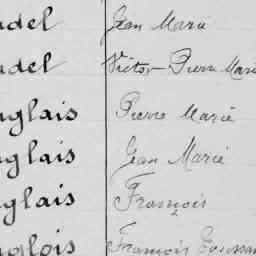 ndel Jean Marie
ndel Victor-Pierre Marie
nglais Pierre Marie
nglais Jean Marie
nglais François
nglois François